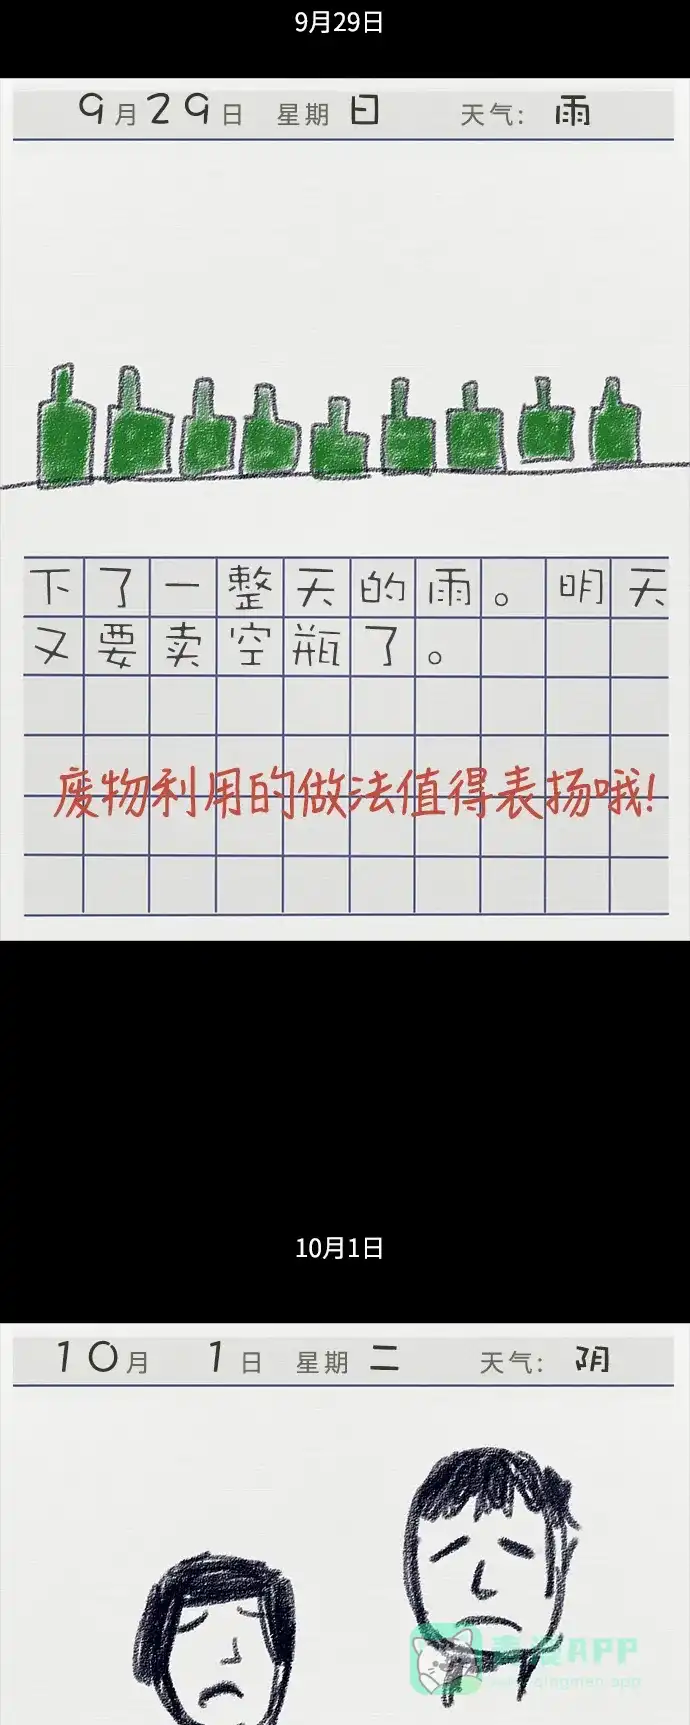 9月29日
9月29日 星期日 天气: 雨
下了一整天的雨。明天
又要卖空瓶了。
废物利用的做法值得表扬哦!
10月1日
10月1日 星期二 天气: 阴
APP